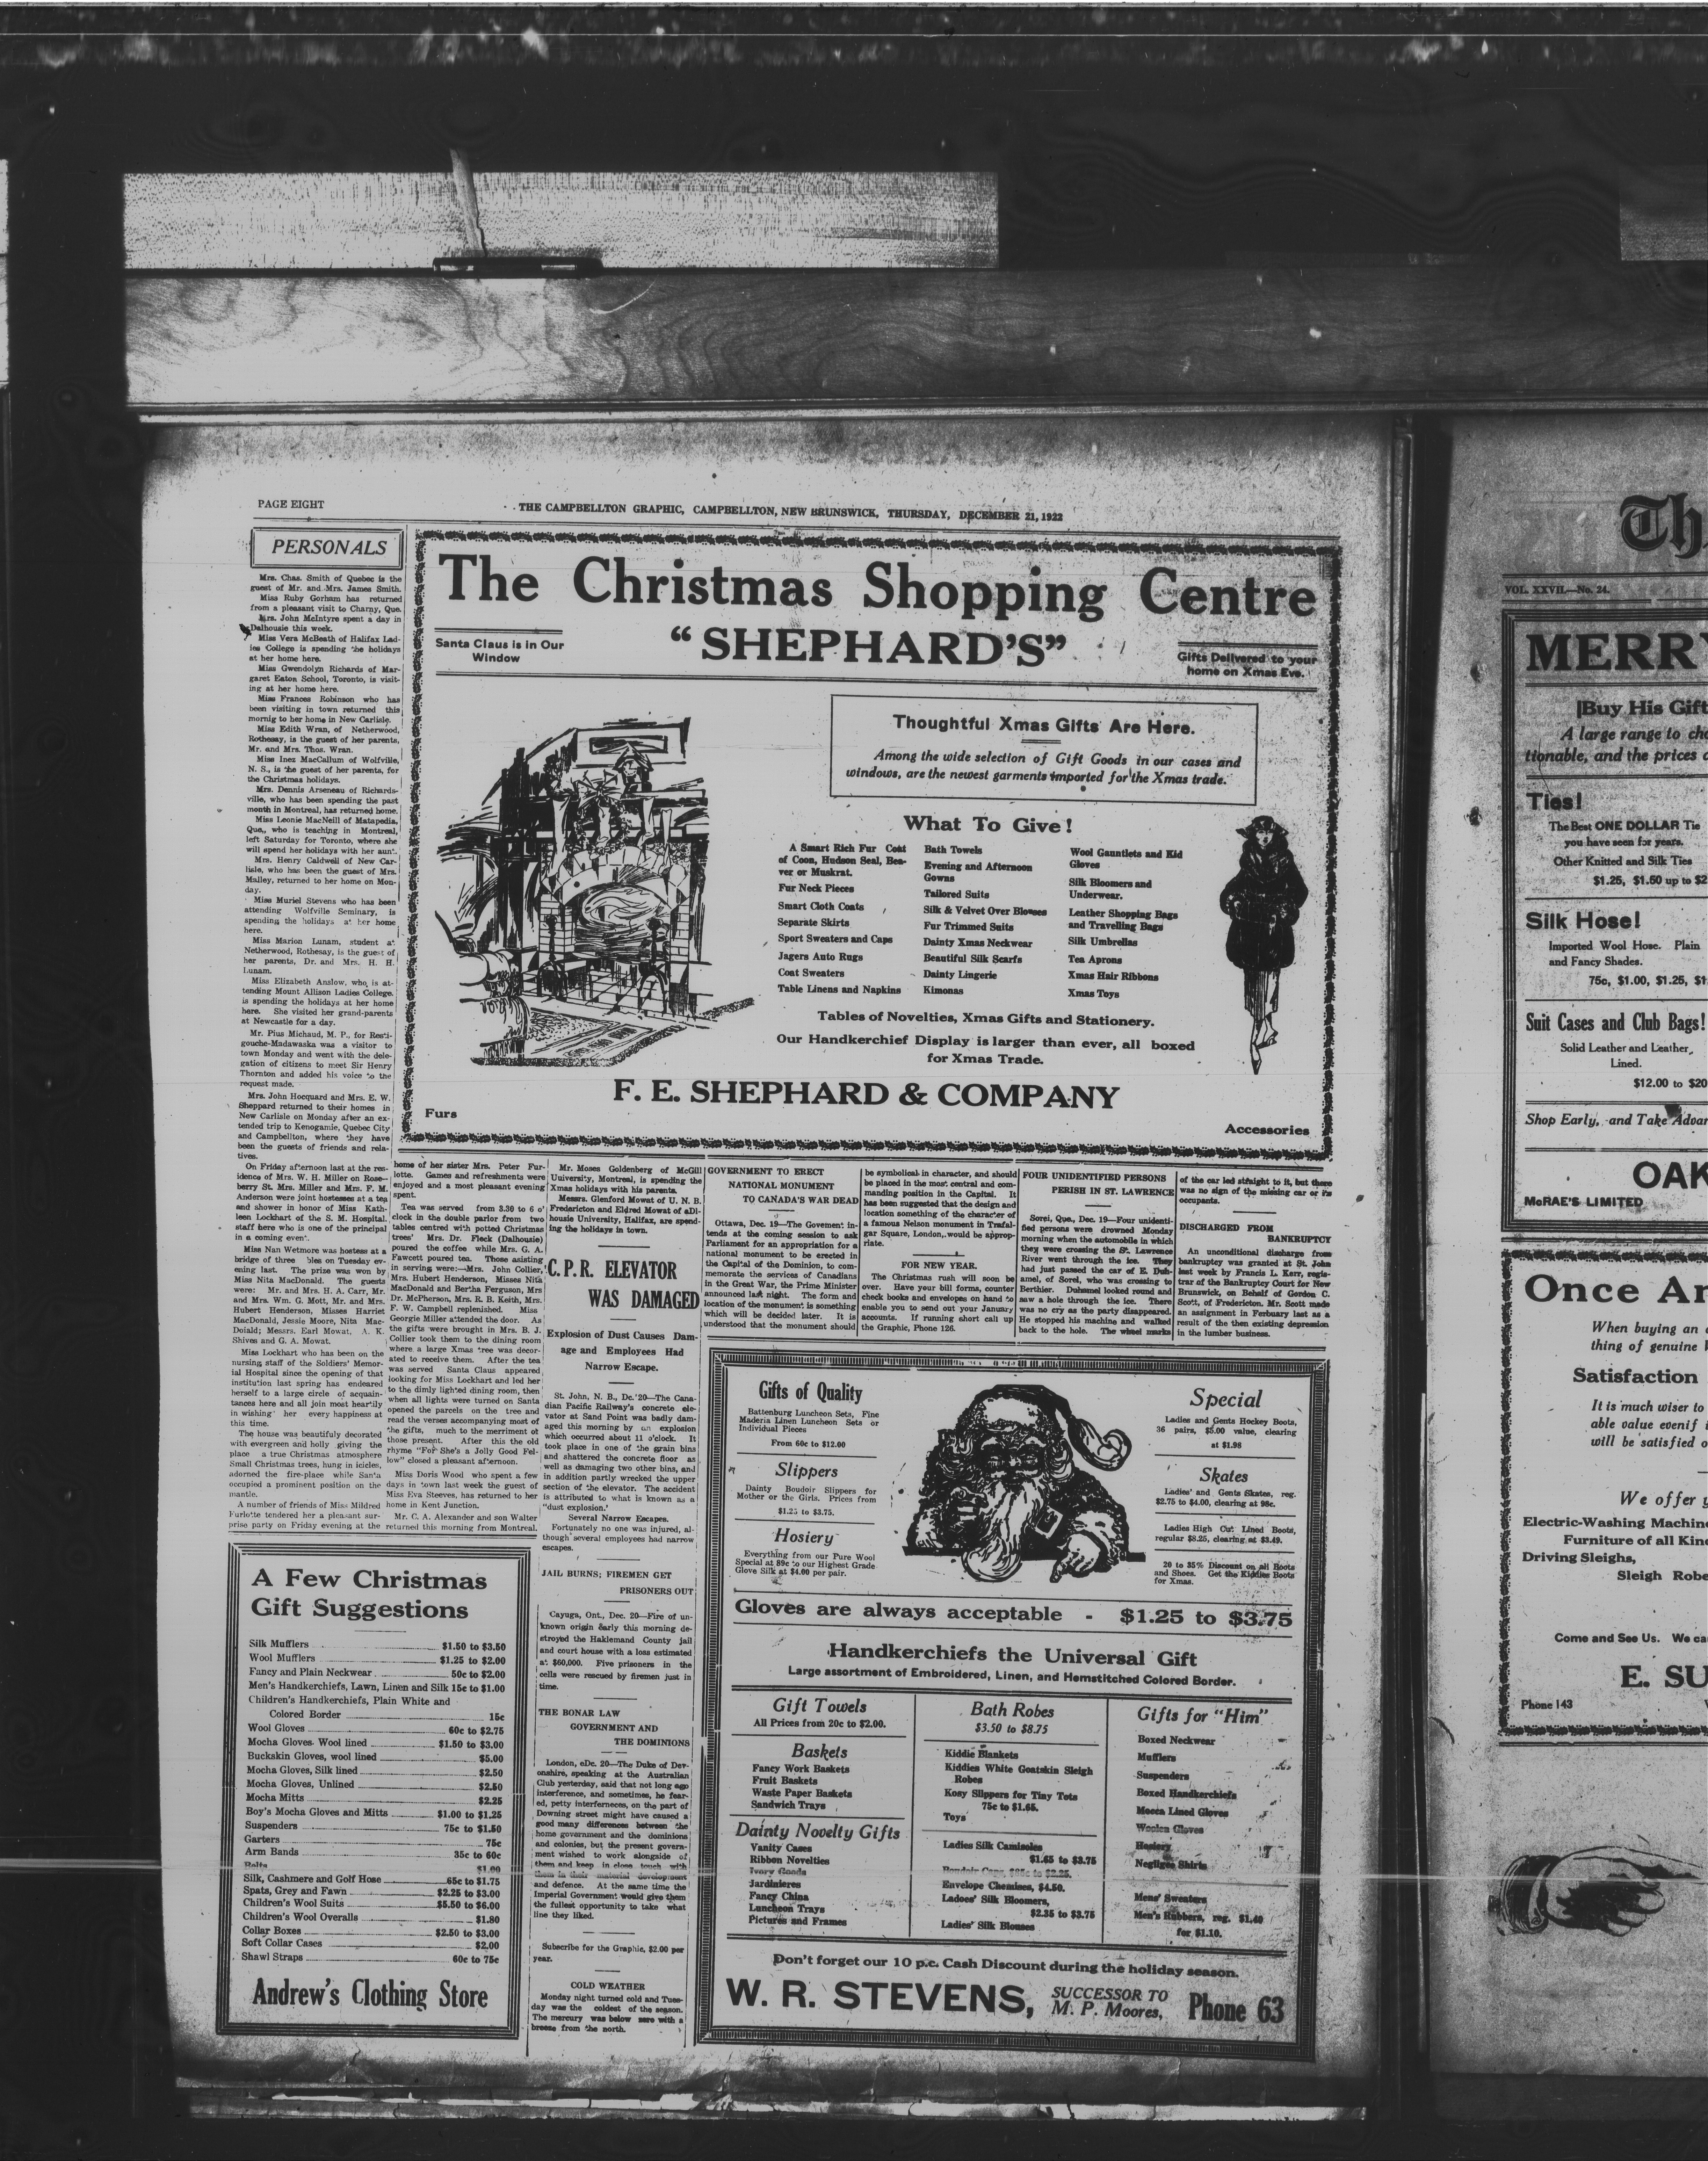 PAGE EIGHT
THE CAMPBELLTON GRAPHIC, CAMPBELLTON, NEW BRUNSWICK, THURSDAY, DECEMBER 21, 1922
PERSONALS
Mrs. Chas. Smith of Quebec is the
guest of Mr. and Mrs. James Smith.
Miss Ruby Gorham has returned
from a pleasant visit to Charny, Que.
Mrs. John McIntyre spent a day in
Dalhousie this week.
Miss Vera McBeath of Halifax Lad-
ies College is spending the holidays
at her home here.
Miss Gwendolyn Richards of Mar-
garet Eaton School, Toronto, is visit-
ing at her home here.
Miss Frances Robinson who has
been visiting in town returned this
mornig to her home in New Carlisle.
Miss Edith Wran, of Netherwood,
Rothesay, is the guest of her parents,
Mr. and Mrs. Thos. Wran.
Miss Inez MacCallum of Wolfville,
N. S., is the guest of her parents, for
the Christmas holidays.
Mrs. Dennis Arseneau of Richards-
ville, who has been spending the past
month in Montreal, has returned home.
Miss Leonie MacNeill of Matapedia,
Que., who is teaching in Montreal,
left Saturday for Toronto, where she
will spend her holidays with her aunt.
Mrs. Henry Caldwell of New Car-
lisle, who has been the guest of Mrs.
Malley, returned to her home on Mon-
day.
Miss Muriel Stevens who has been
attending Wolfville Seminary, is
spending the holidays at her home
here.
Miss Marion Lunam, student at
Netherwood, Rothesay, is the guest of
her parents, Dr. and Mrs. H. H.
Lunam.
Miss Elizabeth Anslow, who is at-
tending Mount Allison Ladies College,
is spending the holidays at her home
here. She visited her grand-parents
at Newcastle for a day.
Mr. Pius Michaud, M. P., for Resti-
gouche-Madawaska was a visitor to
town Monday and went with the dele-
gation of citizens to meet Sir Henry
Thornton and added his voice to the
request made.
Mrs. John Hocquard and Mrs. E. W.
Sheppard returned to their homes in
New Carlisle on Monday after an ex-
tended trip to Kenogamie, Quebec City
and Campbellton, where they have
been the guests of friends and rela-
tives.
On Friday afternoon last at the res-
idence of Mrs. W. H. Miller on Rose-
berry St. Mrs. Miller and Mrs. F. M.
Anderson were joint hostesses at a tea
and shower in honor of Miss Kath-
leen Lockhart of the S. M. Hospital.
staff here who is one of the principal
in a coming event.
Miss Nan Wetmore was hostess at a
bridge of three bles on Tuesday ev-
ening last. The prize was won by
Miss Nita MacDonald. The guests
were: Mr. and Mrs. H. A. Carr, Mr.
and Mrs. Wm. G. Mott, Mr. and Mrs.
Hubert Henderson, Misses Harriet
MacDonald, Jessie Moore, Nita Mac-
Doiald; Messrs. Earl Mowat, A. K.
Shives and G. A. Mowat.
Miss Lockhart who has been on the
nursing staff of the Soldiers' Memor-
ial Hospital since the opening of that
institution last spring has endeared
herself to a large circle of acquain-
tances here and all join most heartily
in wishing her every happiness at
this time.
The house was beautifuly decorated
with evergreen and holly giving the
place a true Christmas atmosphere
Small Christmas trees, hung in icicles,
adorned the fire-place while Santa
occupied a prominent position on the
mantle.
A number of friends of Miss Mildred
Furlotte tendered her a pleasant sur-
prise party on Friday evening at the
home of her sister Mrs. Peter Fur-
lotte. Games and refreshments were
enjoyed and a most pleasant evening
spent.
Tea was served from 3.30 to 6 o'
clock in the double parlor from two
tables centred with potted Christmas
trees' Mrs. Dr. Fleck (Dalhousie)
poured the coffee while Mrs. G. A.
Fawcett poured tea. Those asisting
in serving were:—Mrs. John Collier,
Mrs. Hubert Henderson, Misses Nita
MacDonald and Bertha Ferguson, Mrs
Dr. McPherson, Mrs. R. B. Keith, Mrs.
F. W. Campbell replenished. Miss
Georgie Miller attended the door. As
the gifts were brought in Mrs. B. J.
Collier took them to the dining room
where a large Xmas tree was decor-
ated to receive them. After the tea
was served Santa Claus appeared
looking for Miss Lockhart and led her
to the dimly lighted dining room, then
when all lights were turned on Santa
opened the parcels on the tree and
read the verses accompanying most of
the gifts, much to the merriment of
those present. After this the old
rhyme "For She's a Jolly Good Fel-
low" closed a pleasant afternoon.
Miss Doris Wood who spent a few
days in town last week the guest of
Miss Eva Steeves, has returned to her
home in Kent Junction.
Mr. C. A. Alexander and son Walter
returned this morning from Montreal.
Mr. Moses Goldenberg of McGill
University, Montreal, is spending the
Xmas holidays with his parents.
Messrs. Glenford Mowat of U. N. B.
Fredericton and Eldred Mowat of aDl-
housie University, Halifax, are spend-
ing the holidays in town.
C. P. R. ELEVATOR
WAS DAMAGED
Explosion of Dust Causes Dam-
age and Employees Had
Narrow Escape.
St. John, N. B., Dc. 20—The Cana-
dian Pacific Railway's concrete ele-
vator at Sand Point was badly dam-
aged this morning by an explosion
which occurred about 11 o'clock. It
took place in one of the grain bins
and shattered the concrete floor as
well as damaging two other bins, and
in addition partly wrecked the upper
section of the elevator. The accident
is attributed to what is known as a
"dust explosion.'
Several Narrow Escapes.
Fortunately no one was injured, al-
though several employees had narrow
escapes.
JAIL BURNS; FIREMEN GET
PRISONERS OUT
Cayuga, Ont., Dec. 20—Fire of un-
known origin early this morning de-
stroyed the Haklemand County jail
and court house with a loss estimated
at $60,000. Five prisoners in the
cells were rescued by firemen just in
time.
THE BONAR LAW
GOVERNMENT AND
THE DOMINIONS
London, eDc. 20—The Duke of Dev-
onshire, speaking at the Australian
Club yesterday, said that not long ago
interference, and sometimes, he fear-
ed, petty interferneces, on the part of
Downing street might have caused a
good many differences between the
home government and the dominions
and colonies, but the present govern-
ment wished to work alongside of
them and keep in close touch with
them in their material development
and defence. At the same time the
Imperial Government would give them
the fullest opportunity to take what
line they liked.
Subscribe for the Graphic, $2.00 per
year.
COLD WEATHER
Monday night turned cold and Tues-
day was the coldest of the season.
The mercury was below zero with a
breeze from the north.
The Christmas Shopping Centre
"SHEPHARD'S"
Santa Claus is in Our
Window
Gifts Delivered to your
home on Xmas Eve.
Thoughtful Xmas Gifts Are Here.
Among the wide selection of Gift Goods in our cases and
windows, are the newest garments imported for the Xmas trade.
What To Give!
A Smart Rich Fur Coat
of Coon, Hudson Seal, Bea-
ver or Muskrat.
Fur Neck Pieces
Smart Cloth Coats
Separate Skirts
Sport Sweaters and Caps
Jagers Auto Rugs
Coat Sweaters
Table Linens and Napkins
Bath Towels
Evening and Afternoon
Gowns
Tailored Suits
Silk & Velvet Over Blouses
Fur Trimmed Suits
Dainty Xmas Neckwear
Beautiful Silk Scarfs
Dainty Lingerie
Kimonas
Wool Gauntlets and Kid
Gloves
Silk Bloomers and
Underwear.
Leather Shopping Bags
and Travelling Bags
Silk Umbrellas
Tea Aprons
Xmas Hair Ribbons
Xmas Toys
Tables of Novelties, Xmas Gifts and Stationery.
Our Handkerchief Display is larger than ever, all boxed
for Xmas Trade.
F. E. SHEPHARD & COMPANY
Furs
Accessories
GOVERNMENT TO ERECT
NATIONAL MONUMENT
TO CANADA'S WAR DEAD
Ottawa, Dec. 19—The Govement in-
tends at the coming session to ask
Parliament for an appropriation for a
national monument to be erected in
the Capital of the Dominion, to com-
memorate the services of Canadians
in the Great War, the Prime Minister
announced last night. The form and
location of the monument is something
which will be decided later. It is
understood that the monument should
be symbolical in character, and should
be placed in the most central and com-
manding position in the Capital. It
has been suggested that the design and
location something of the character of
a famous Nelson monument in Trafal-
gar Square, London, would be approp-
riate.
FOR NEW YEAR.
The Christmas rush will soon be
over. Have your bill forms, counter
check books and envelopes on hand to
enable you to send out your January
accounts. If running short call up
the Graphic, Phone 126.
FOUR UNIDENTIFIED PERSONS
PERISH IN ST. LAWRENCE
Sorel, Que., Dec. 19—Four unidenti-
fied persons were drowned Monday
morning when the automobile in which
they were crossing the St. Lawrence
River went through the ice. They
had just passed the car of E. Duh-
amel, of Sorel, who was crossing to
Berthier. Duhamel looked round and
saw a hole through the ice. There
was no cry as the party disappeared.
He stopped his machine and walked
back to the hole. The wheel marks
of the car led straight to it, but there
was no sign of the missing car or its
occupants.
DISCHARGED FROM
BANKRUPTCY
An unconditional discharge from
bankruptcy was granted at St. John
last week by Francis L. Kerr, regis-
trar of the Bankruptcy Court for New
Brunswick, on Behalf of Gordon C.
Scott, of Fredericton. Mr. Scott made
an assignment in Ferbuary last as a
result of the then existing depression
in the lumber business.
A Few Christmas
Gift Suggestions
Silk Mufflers $1.50 to $3.50
Wool Mufflers $1.25 to $2.00
Fancy and Plain Neckwear 50c to $2.00
Men's Handkerchiefs, Lawn, Linen and Silk 15c to $1.00
Children's Handkerchiefs, Plain White and
Colored Border 15c
Wool Gloves 60c to $2.75
Mocha Gloves. Wool lined $1.50 to $3.00
Buckskin Gloves, wool lined $5.00
Mocha Gloves, Silk lined $2.50
Mocha Gloves, Unlined $2.50
Mocha Mitts $2.25
Boy's Mocha Gloves and Mitts $1.00 to $1.25
Suspenders 75c to $1.50
Garters 75c
Arm Bands 35c to 60c
Belts $1.00
Silk, Cashmere and Golf Hose 65c to $1.75
Spats, Grey and Fawn $2.25 to $3.00
Children's Wool Suits $5.50 to $6.00
Children's Wool Overalls $1.80
Collar Boxes $2.50 to $3.00
Soft Collar Cases $2.00
Shawl Straps 60c to 75c
Andrew's Clothing Store
Gifts of Quality
Battenburg Luncheon Sets, Fine
Maderia Linen Luncheon Sets or
Individual Pieces
From 60c to $12.00
Slippers
Dainty Boudoir Slippers for
Mother or the Girls. Prices from
$1.25 to $3.75.
Hosiery
Everything from our Pure Wool
Special at 89c to our Highest Grade
Glove Silk at $4.00 per pair.
Special
Ladies and Gents Hockey Boots,
36 pairs, $5.00 value, clearing
at $1.98
Skates
Ladies' and Gents Skates, reg.
$2.75 to $4.00, clearing at 98c.
Ladies High Cut Lined Boots,
regular $8.25, clearing at $3.49.
20 to 35% Discount on all Boots
and Shoes. Get the Kiddies Boots
for Xmas.
Gloves are always acceptable - $1.25 to $3.75
Handkerchiefs the Universal Gift
Large assortment of Embroidered, Linen, and Hemstitched Colored Border.
Gift Towels
All Prices from 20c to $2.00.
Baskets
Fancy Work Baskets
Fruit Baskets
Waste Paper Baskets
Sandwich Trays
Dainty Novelty Gifts
Vanity Cases
Ribbon Novelties
Ivory Goods
Jardinieres
Fancy China
Luncheon Trays
Pictures and Frames
Bath Robes
$3.50 to $8.75
Kiddie Blankets
Kiddies White Goatskin Sleigh
Robes
Kosy Slippers for Tiny Tots
75c to $1.65.
Toys
Ladies Silk Camisoles
$1.65 to $3.75
Boudoir Caps,
Envelope Chemises, $4.50.
Ladoes' Silk Bloomers,
$2.35 to $3.75
Ladies' Silk Blouses
Gifts for "Him"
Boxed Neckwear
Mufflers
Suspenders
Boxed Handkerchiefs
Mocca Lined Gloves
Woolen Gloves
Hosiery
Negligee Shirts
Mens' Sweaters
Men's Rubbers, reg. $1.40
for $1.10.
Don't forget our 10 p.c. Cash Discount during the holiday season.
W. R. STEVENS, SUCCESSOR TO
M. P. Moores, Phone 63
Th
VOL. XXVII.—No. 24.
MERRY
Buy His Gift
A large range to cho
tionable, and the prices
Ties!
The Best ONE DOLLAR Tie
you have seen for years.
Other Knitted and Silk Ties
$1.25, $1.50 up to $2
Silk Hose!
Imported Wool Hose. Plain
and Fancy Shades.
75c, $1.00, $1.25, $1
Suit Cases and Club Bags!
Solid Leather and Leather
Lined.
$12.00 to $20
Shop Early, and Take Advan
OAK
McRAE'S LIMITED
Once An
When buying an
thing of genuine
Satisfaction
It is much wiser to
able value even if
will be satisfied
We offer
Electric-Washing Machin
Furniture of all Kin
Driving Sleighs,
Sleigh Robe
Come and See Us. We ca
E. SU
Phone 143